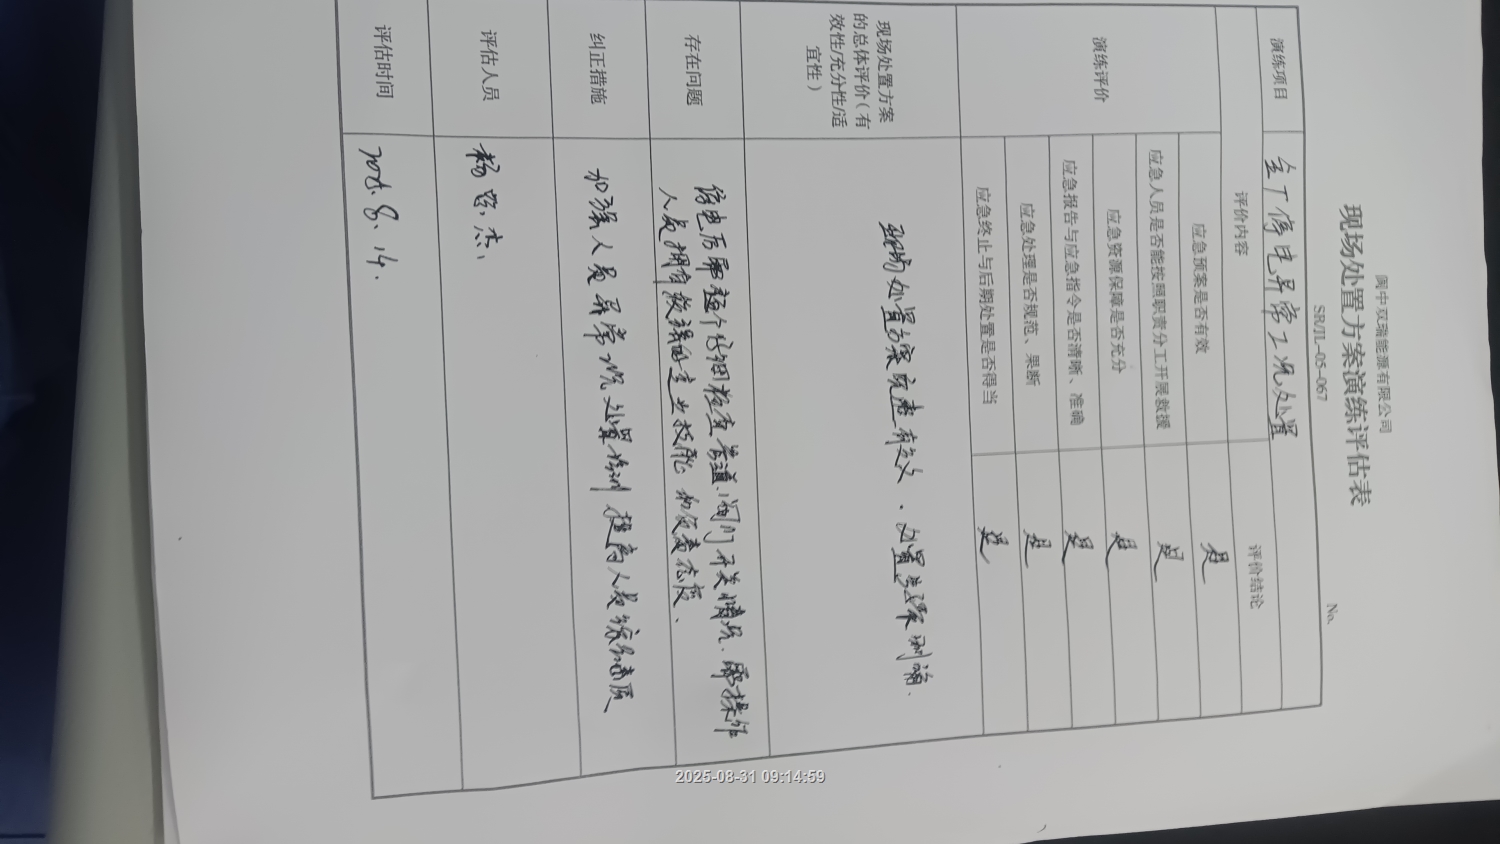 阆中双瑞能源有限公司
SR/JL-05-067
现场处置方案演练评估表
No.
演练项目 全厂停电异常工况处置
演练评价 评价内容 评价结论
应急预案是否有效 是
应急人员是否能按照职责分工开展救援 是
应急资源保障是否充分 是
应急报告与应急指令是否清晰、准确 是
应急处理是否规范、果断 是
应急终止与后期处置是否得当 是
现场处置方案
的总体评价(有
效性/充分性/适
宜性)
现场处置方案完整有效.处置步骤明确.
存在问题
停电后需逐个仔细检查管道、阀门开关情况.需操作
人员拥有较强的专业技能和负责态度.
纠正措施
加强人员异常情况处置培训 提高人员综合素质
评估人员 杨
评估时间 8.14.
2025-08-31 09:14:59